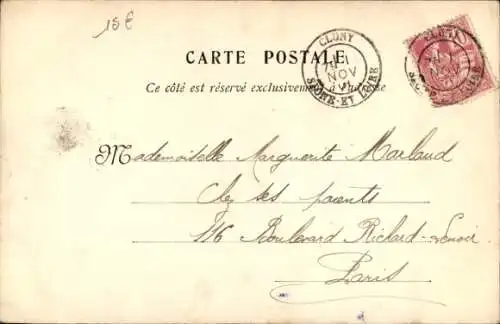 15€
CARTE POSTALE
CLUNY
NOV
SAONE-ET-LOIRE
Ce côté est réservé exclusivement à l'adresse
Mademoiselle Marguerite Marlaud
Chez ses parents
116 Boulevard Richard-Lenoir
Paris